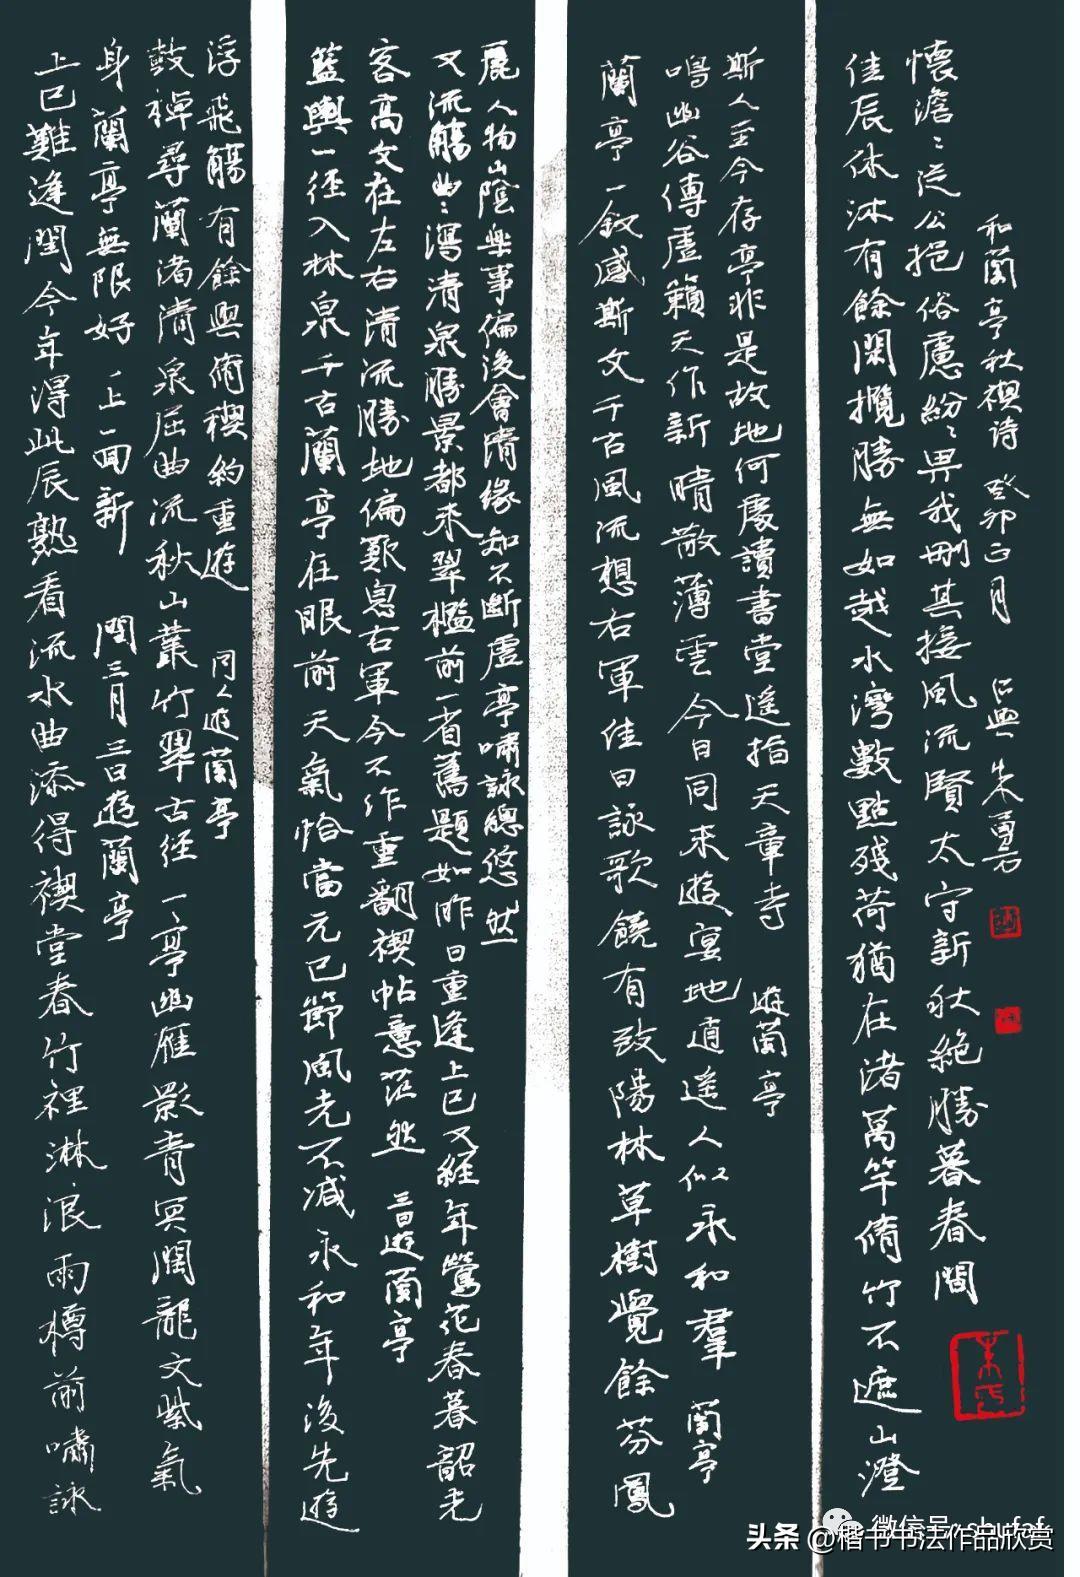 上巳難逢閏今年得此辰熟看流水曲添得禊堂春竹裡淋浪雨樽前嘯詠
身蘭亭無限好一上一回新 閏三月三日遊蘭亭
鼓棹尋蘭渚清泉屈曲流秋山叢竹翠古徑一亭幽雁影青冥闊龍文紫氣
浮飛觴有餘興脩禊約重遊 同人遊蘭亭
籃輿一徑入林泉千古蘭亭在眼前天氣恰當元巳節風光不減永和年後先遊
客高文在左右清流勝地偏歎息右軍今不作重翻禊帖意茫然 三日遊蘭亭
又流觴曲〻瀉清泉勝景都來翠檻前一省舊題如昨日重逢上巳又經年鶯花春暮韶光
麗人物山陰樂事偏後會清緣知不斷虛亭嘯詠總悠然
蘭亭一敘感斯文千古風流想右軍佳日詠歌饒有致陽林草樹覺餘芬鳳
鳴幽谷傳虛籟天作新晴散薄雲今日同來遊宴地逍遙人似永和羣 蘭亭
斯人至今存亭非是故地何處讀書堂遙指天章寺 遊蘭亭
佳辰休沐有餘閑攬勝無如越水灣數點殘荷猶在渚萬竿脩竹不遮山澄
懷澹〻從公挹俗慮紛〻畀我刪其接風流賢太守新秋絕勝暮春間
和蘭亭秋禊诗 癸卯正月 紹興朱勇方
微信号: shufaf
头条 @楷书书法作品欣赏